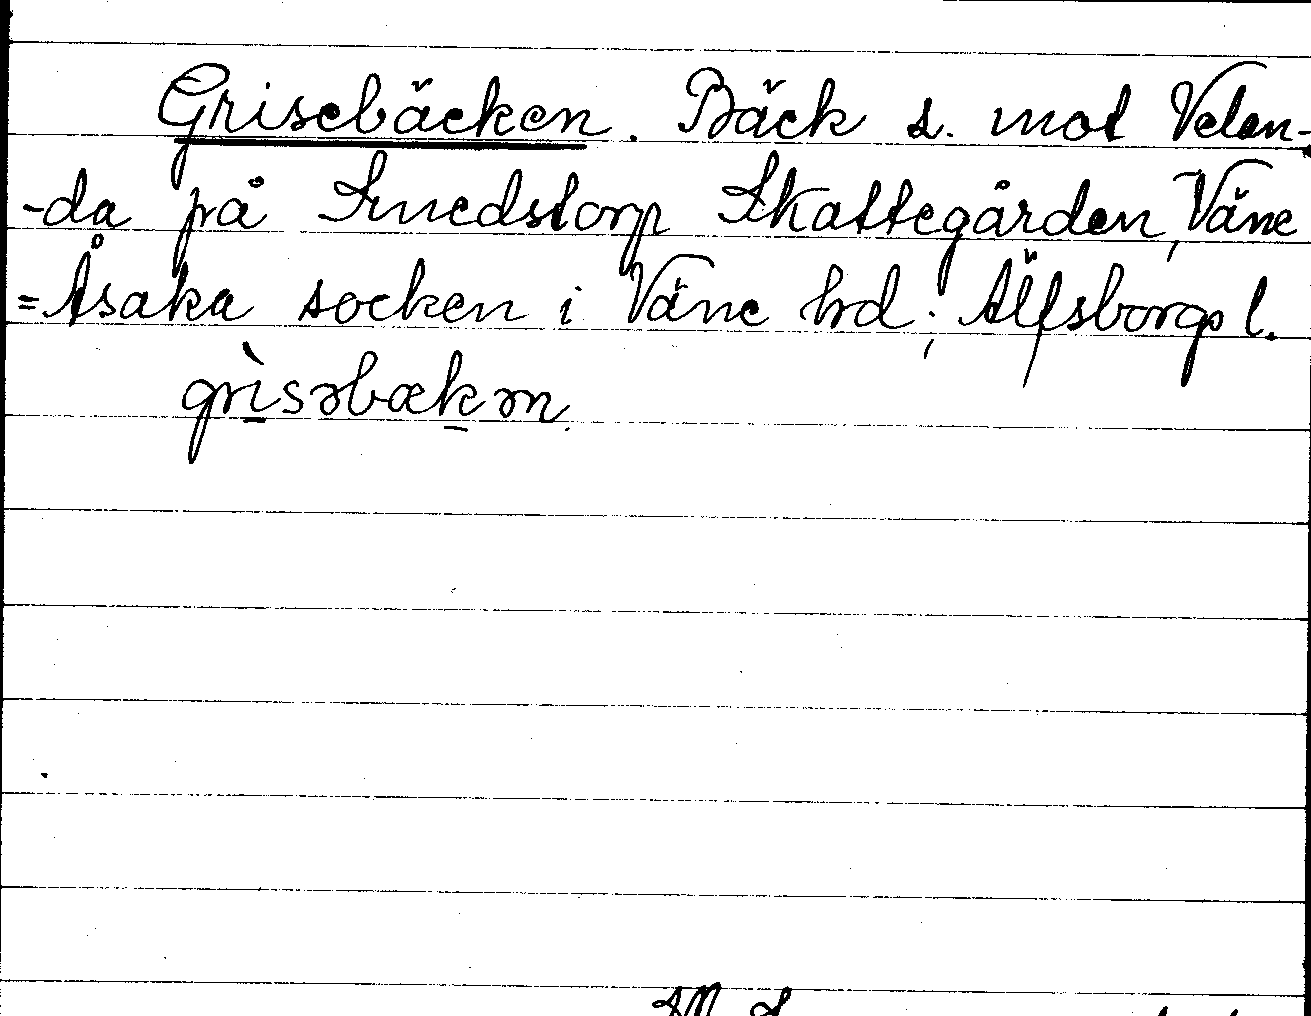 Grisebäcken. Bäck s. mot Velan-
-da på Smedstorp Skattegården, Väne
=Åsaka socken i Väne hd; Älfsborgs l.
grìsəbækən.